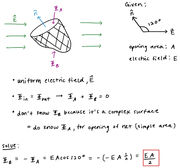 Φ_A
Given:
n̂
E⃗
n̂
120°
E⃗
Φ_B
opening area: A
electric field: E
• uniform electric field, E⃗
• Φ_in = Φ_net → Φ_A + Φ_B = 0
• don't know Φ_B because it's a complex surface
• do know Φ_A, for opening of net (simple area)
Solve:
Φ_B = -Φ_A = -EA cos120° = -(-EA ½) = EA/2